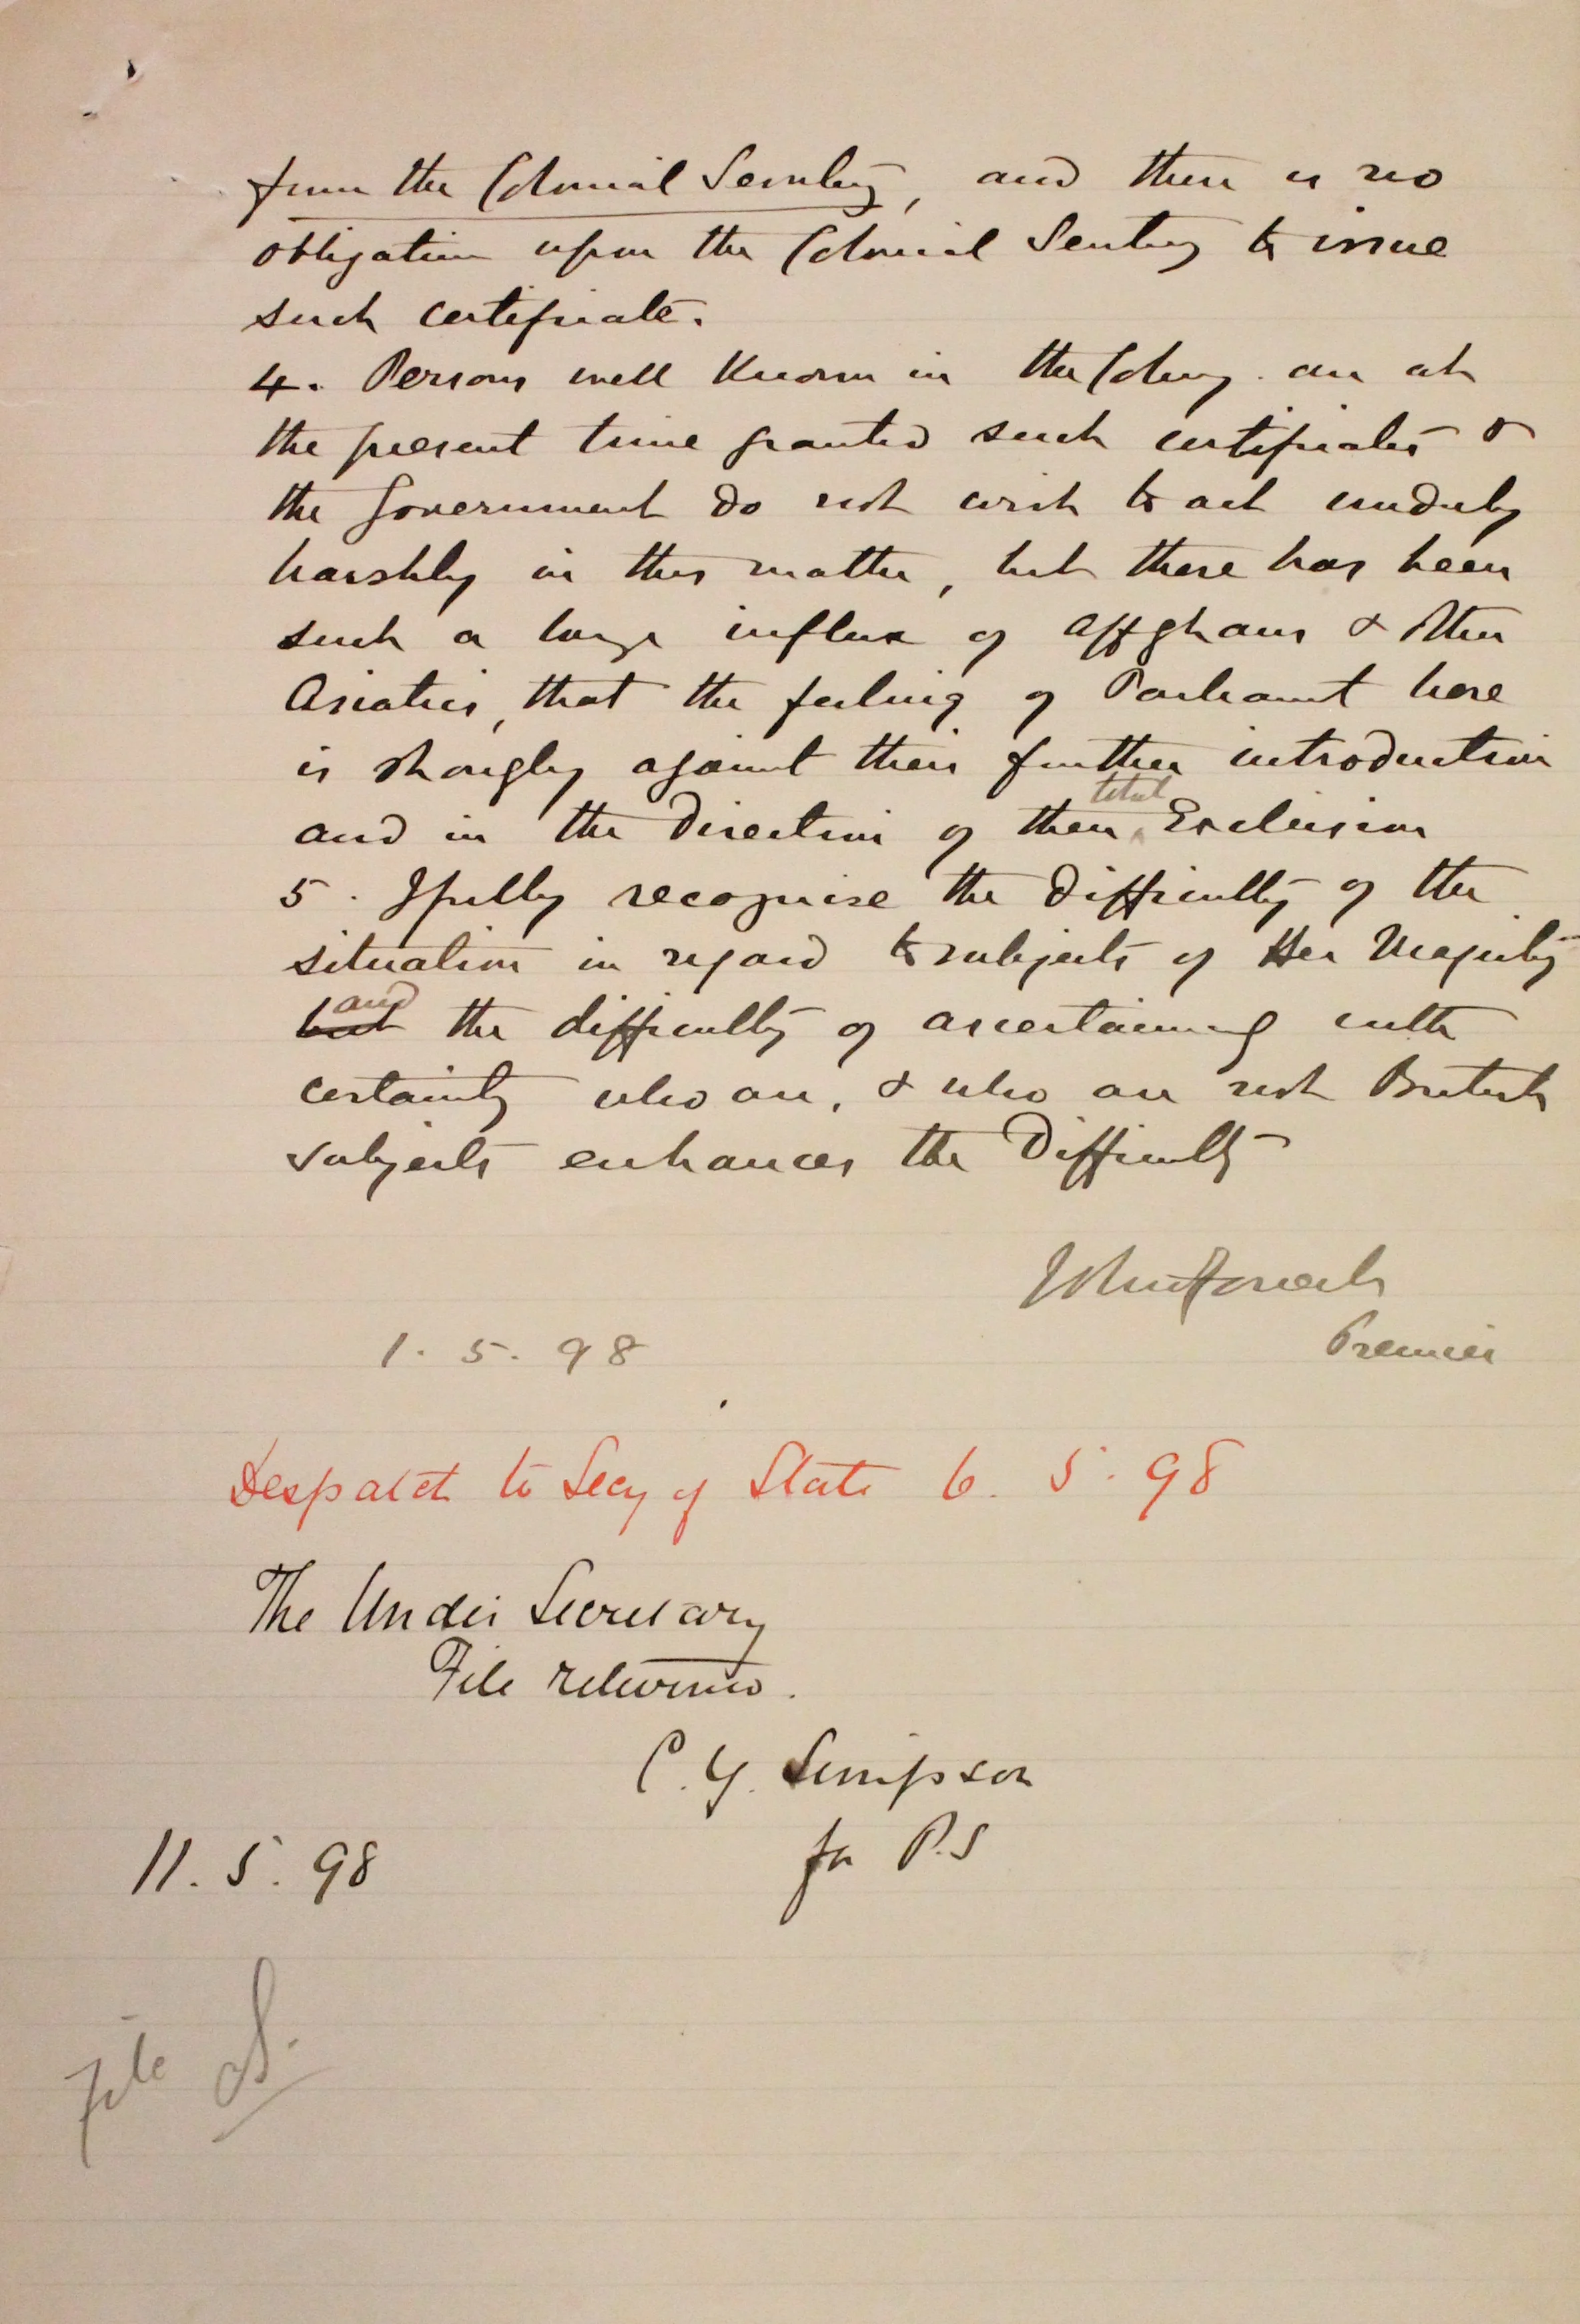 from the Colonial Secretary, and there is no
obligation upon the Colonial Secretary to issue
such certificate.
4. Persons well known in the Colony are at
the present time granted such certificates &
the Government do not wish to act unduly
harshly in this matter, but there has been
such a large influx of Affghans & other
Asiatics, that the feeling of Parliament here
is strongly against their further introduction
and in the direction of their total Exclusion
5. I fully recognise the difficulty of the
situation in regard to subjects of Her Majesty
but and the difficulty of ascertaining with
certainty who are, & who are not British
subjects enhances the difficulty
John Forrest
Premier
1. 5. 98
Despatch to Secy of State 6. 5. 98
The Under Secretary
File returned.
C. Y. Simpson
for P.S
11. 5. 98
File